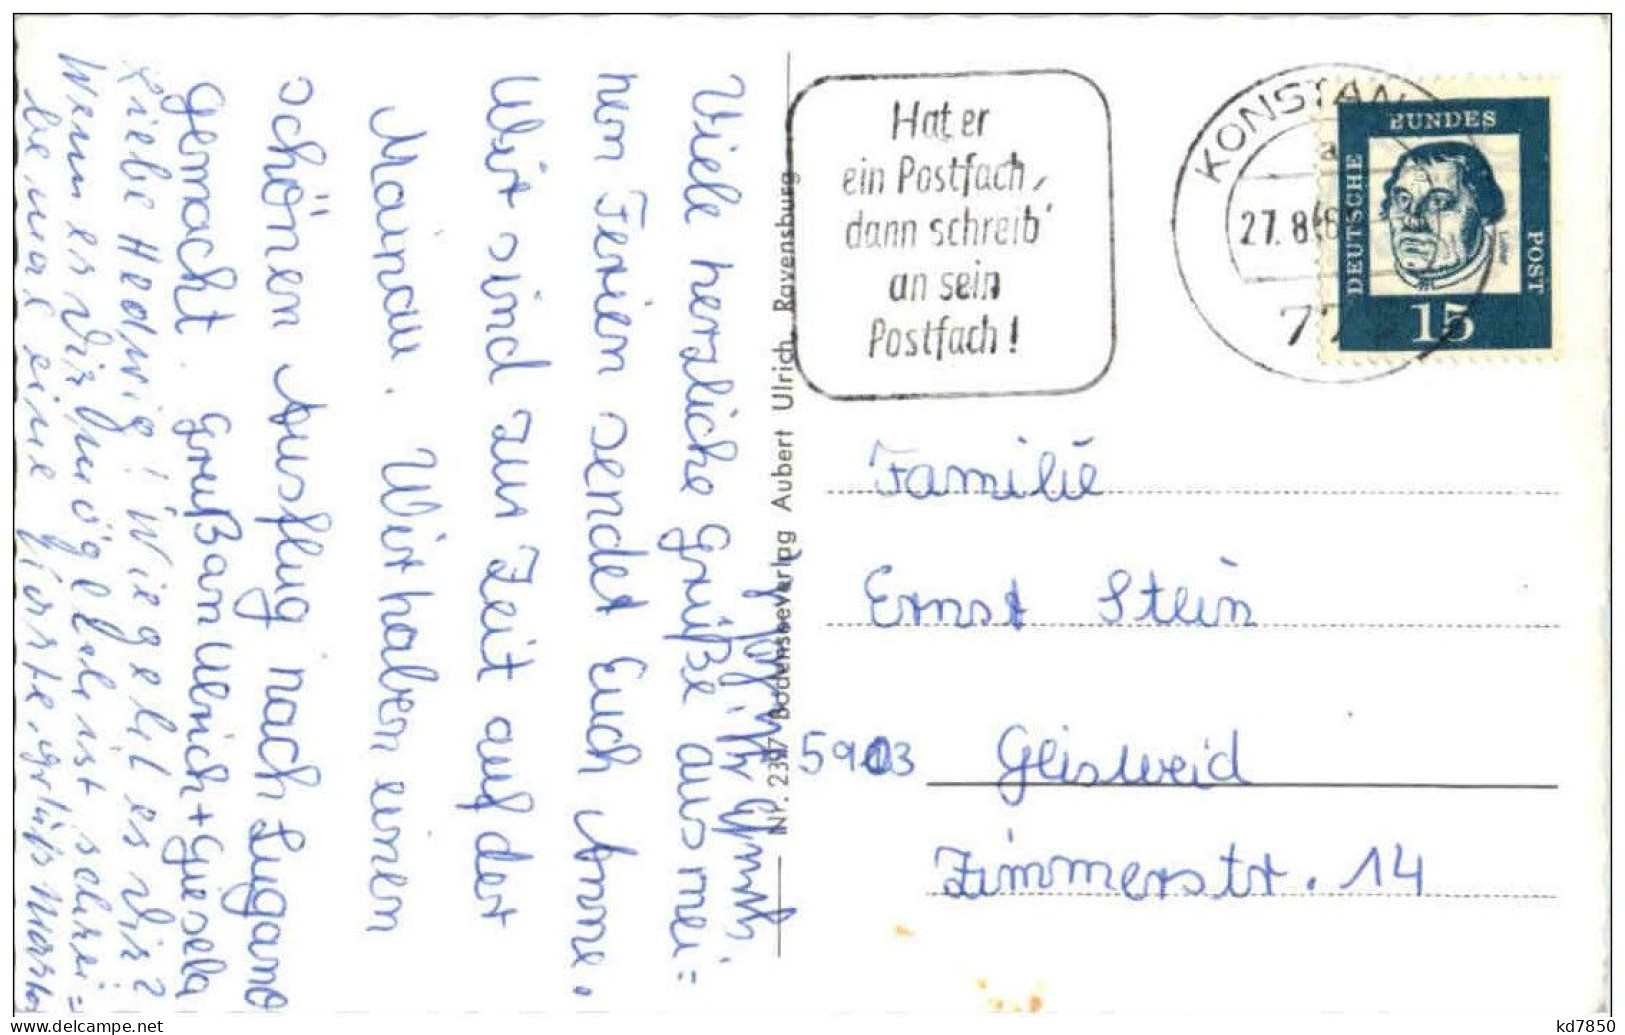 Viele herzliche Grüße aus mei=
nen Ferien sendet Euch Anne.
Wir sind zur Zeit auf der
Mainau. Wir haben einen
schönen Ausflug nach Lugano
gemacht. Gruß an Ulrich + Giesela
Liebe Hedwig! Wie geht es Dir?
Wenn es Dir möglich ist schrei=
be mal eine Karte,
Nr. 2397 Bodenseeverlag Aubert Ulrich, Ravensburg
Hat er
ein Postfach,
dann schreib'
an sein
Postfach!
KONSTAN
27.8.6
77
DEUTSCHE
BUNDES
POST
Luther
15
Familie
Ernst Stein
5903 Geisweid
Zimmerstr. 14
kd7850